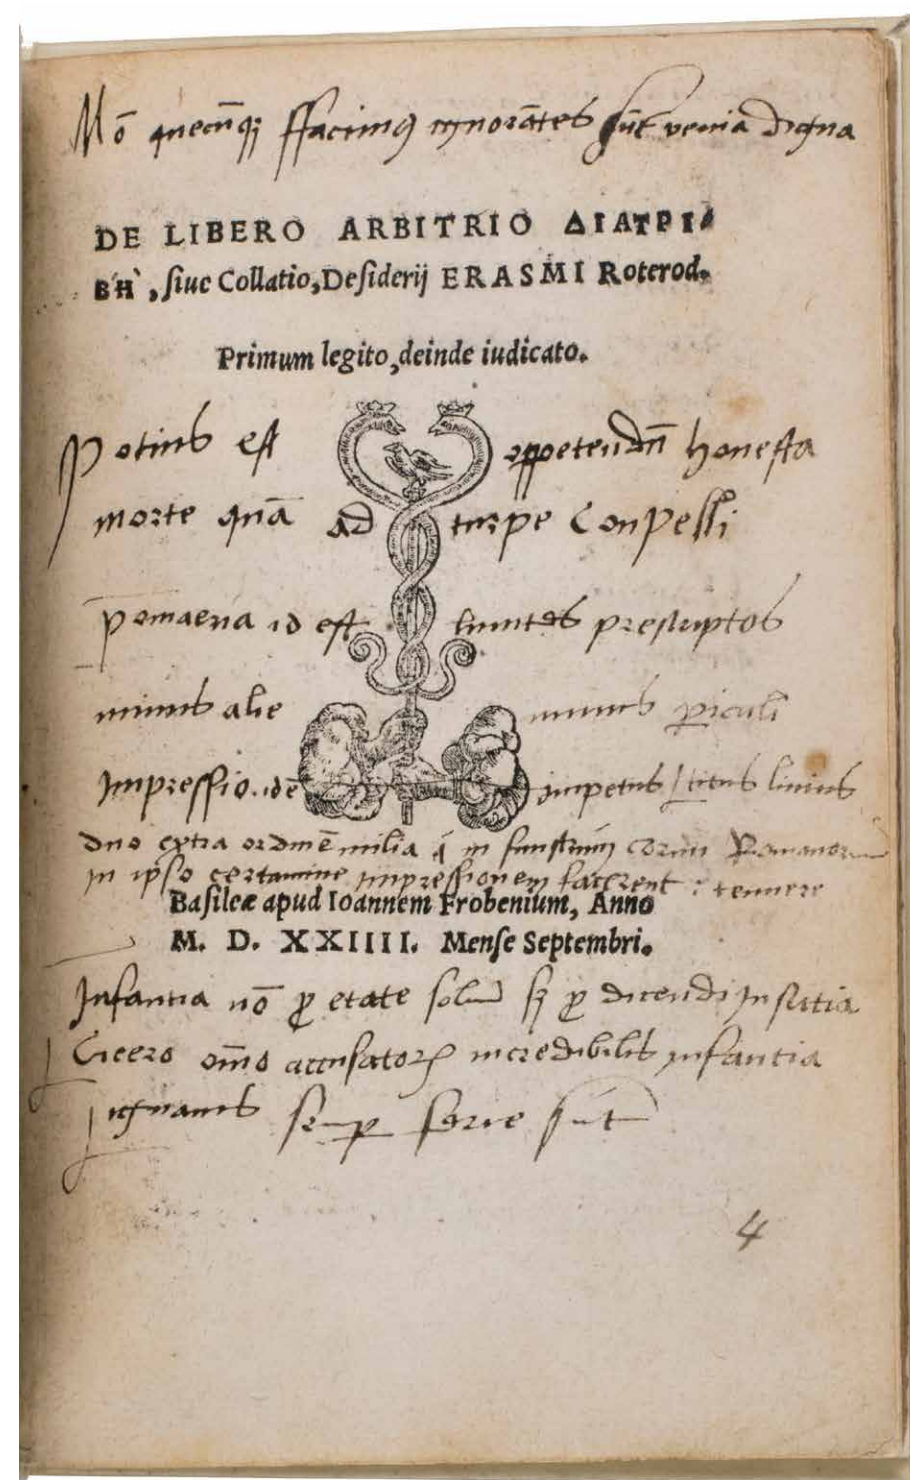 Nō quecūqȝ ffacimꝰ ignorātes sūt venia digna
DE LIBERO ARBITRIO ΔΙΑΤΡΙ⸗
ΒΉ, ſiue Collatio, Deſiderij ERASMI Roterod.
Primum legito, deinde iudicato.
Potius est oppetendū honesta
morte quā ad turpe Conpelli
pomaeria id est limites
minus alie
Impressio. idē impetus / titus liuius
duo extra ordinē milia in
in ipso certamine impressionem facerent: tenuere
Baſileæ apud Ioannem Frobenium, Anno
M. D. XXIIII. Menſe Septembri.
Infantia nō ꝓ etate solum sȝ ꝓ dicendi Inscitia
Cicero omīo accusatorꝝ incredibilis infantia
semꝑ sūt
4